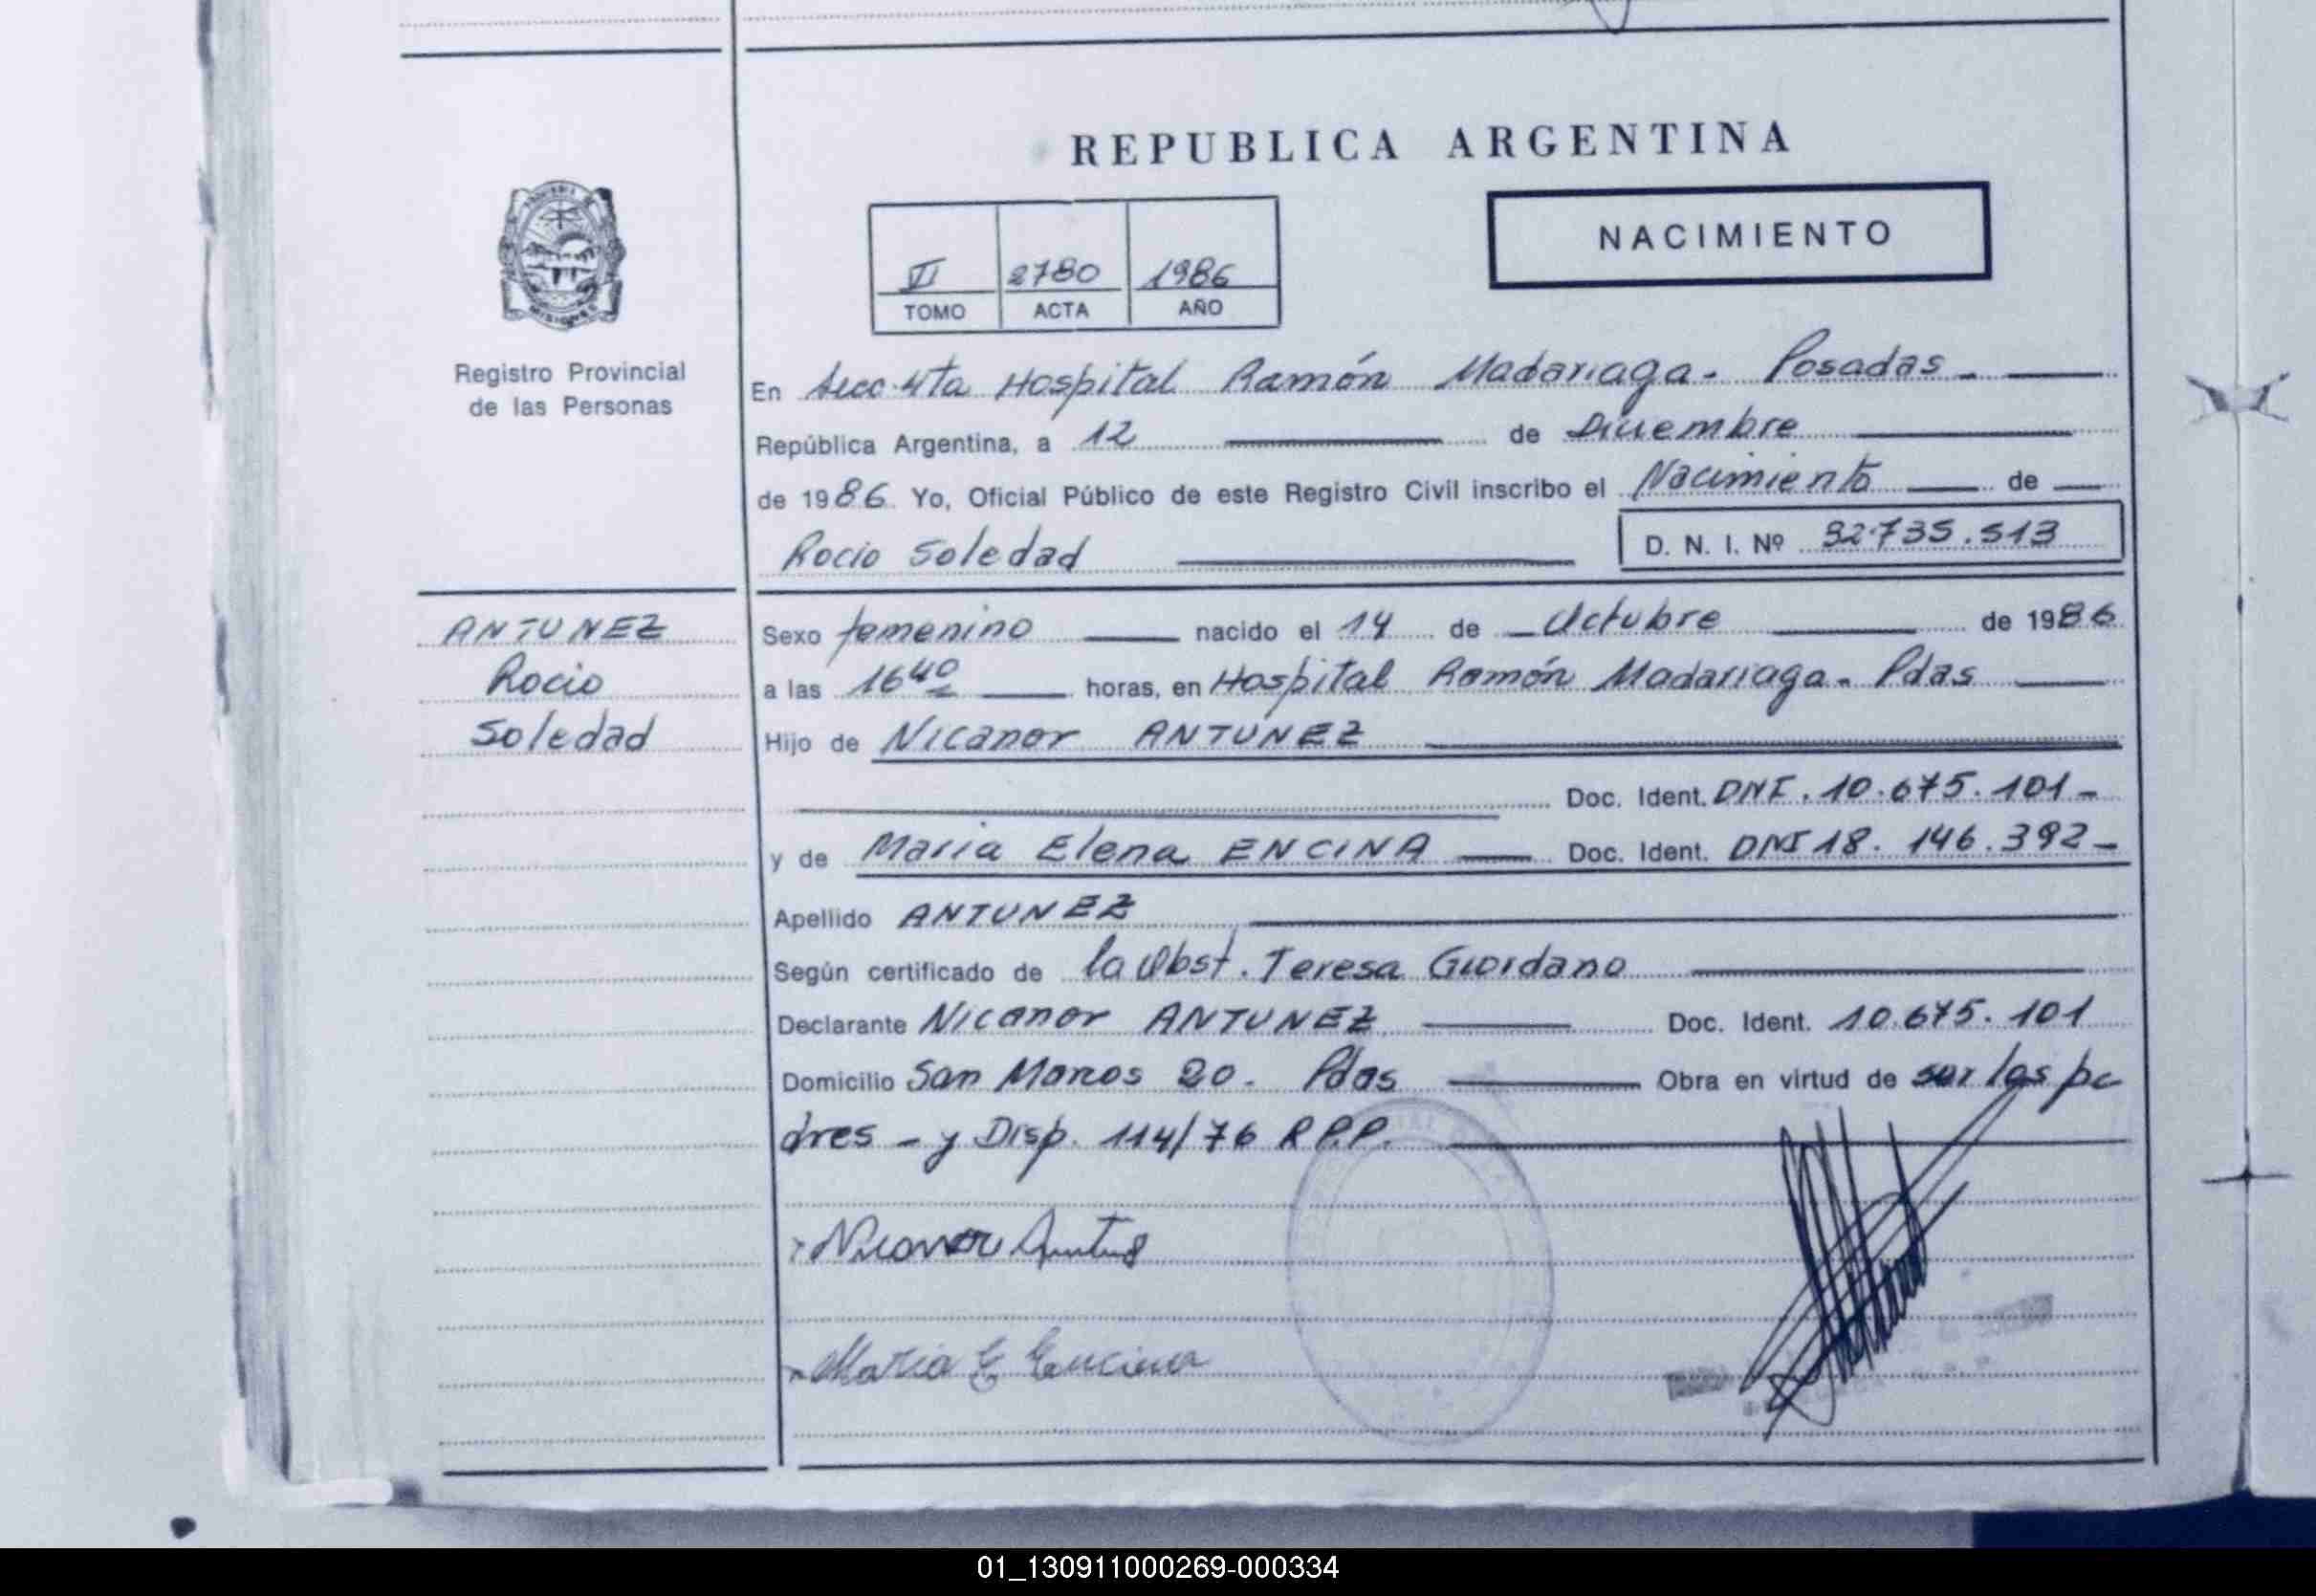 REPUBLICA ARGENTINA
NACIMIENTO
VI 2780 1986
TOMO ACTA AÑO
Registro Provincial
de las Personas
En Secc. 4ta Hospital Ramón Madariaga - Posadas -
República Argentina, a 12 de Diciembre
de 1986. Yo, Oficial Público de este Registro Civil inscribo el Nacimiento de
Rocio Soledad D. N. I. Nº 32.735.513
ANTUNEZ
Rocio
Soledad
Sexo femenino nacido el 14 de Octubre de 1986
a las 16 40 horas, en Hospital Ramón Madariaga - Pdas
Hijo de Nicanor ANTUNEZ
Doc. Ident. DNI. 10.675.101 -
y de Maria Elena ENCINA Doc. Ident. DNI 18.146.392 -
Apellido ANTUNEZ
Según certificado de la Obst. Teresa Giordano
Declarante Nicanor ANTUNEZ Doc. Ident. 10.675.101
Domicilio San Marcos 20. Pdas Obra en virtud de ser los pa
dres - y Disp. 114/76 R.P.P.
Nicanor Antunez
Maria E Encina
01_130911000269-000334